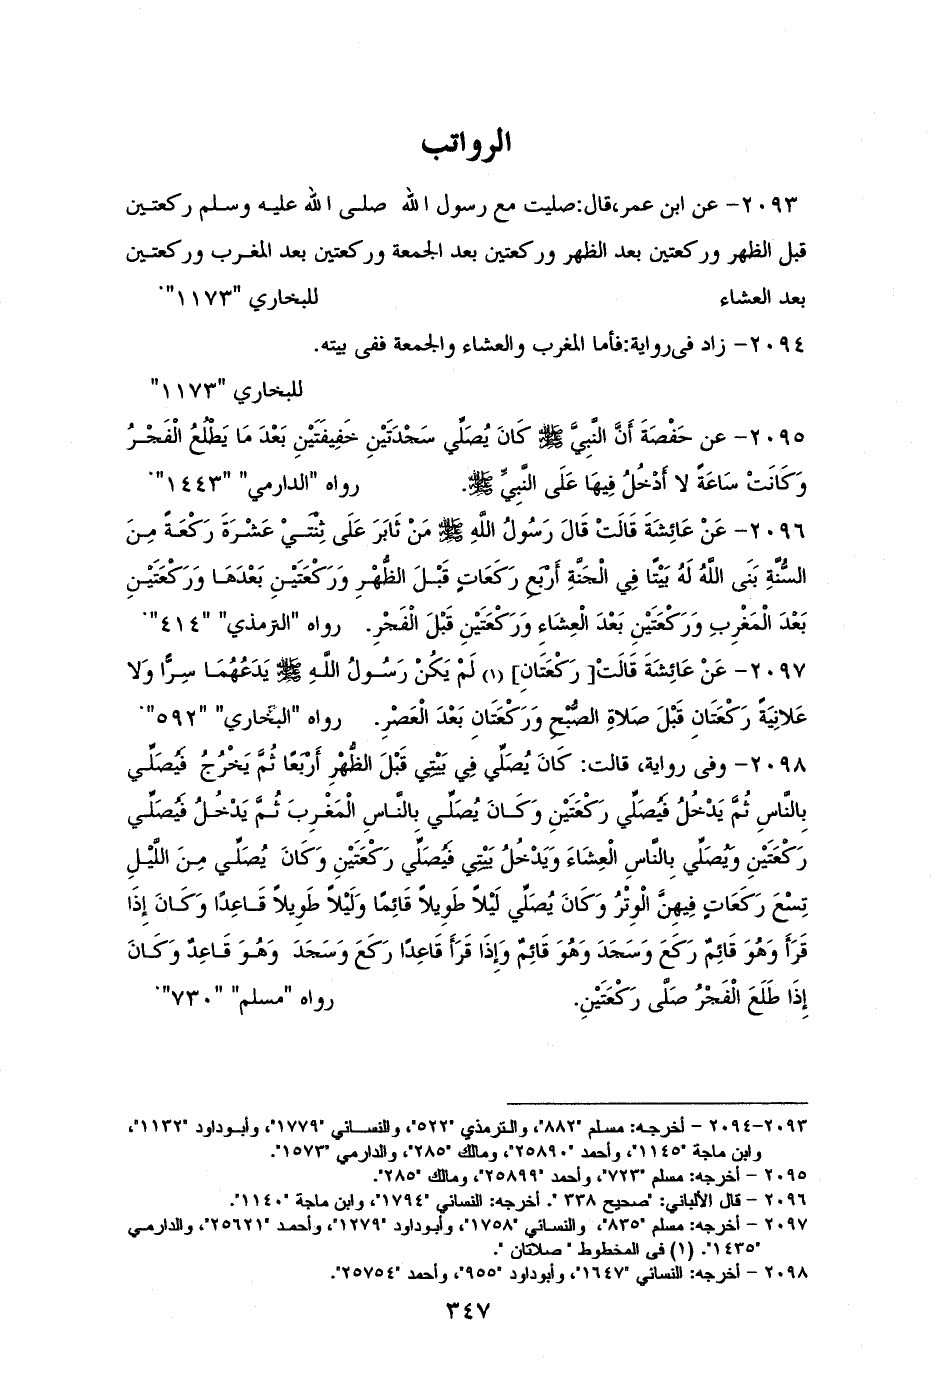 الرواتب
٢٠٩٣- عن ابن عمر،قال:صليت مع رسول الله صلى الله عليه وسلم ركعتين
قبل الظهر وركعتين بعد الظهر وركعتين بعد الجمعة وركعتين بعد المغرب وركعتين
بعد العشاء للبخاري "١١٧٣".
٢٠٩٤- زاد فى رواية:فأما المغرب والعشاء والجمعة ففى بيته.
للبخاري "١١٧٣"
٢٠٩٥- عن حَفْصَةَ أَنَّ النَّبِيَّ ﷺ كَانَ يُصَلِّي سَجْدَتَيْنِ خَفِيفَتَيْنِ بَعْدَ مَا يَطْلُعُ الْفَجْرُ
وَكَانَتْ سَاعَةً لا أَدْخُلُ فِيهَا عَلَى النَّبِيِّ ﷺ. رواه "الدارمي" "١٤٤٣".
٢٠٩٦- عَنْ عَائِشَةَ قَالَتْ قَالَ رَسُولُ اللَّهِ ﷺ مَنْ ثَابَرَ عَلَى ثِنْتَيْ عَشْرَةَ رَكْعَةً مِنَ
السُّنَّةِ بَنَى اللَّهُ لَهُ بَيْتًا فِي الْجَنَّةِ أَرْبَعِ رَكَعَاتٍ قَبْلَ الظُّهْرِ وَرَكْعَتَيْنِ بَعْدَهَا وَرَكْعَتَيْنِ
بَعْدَ الْمَغْرِبِ وَرَكْعَتَيْنِ بَعْدَ الْعِشَاءِ وَرَكْعَتَيْنِ قَبْلَ الْفَجْرِ. رواه "الترمذي" "٤١٤".
٢٠٩٧- عَنْ عَائِشَةَ قَالَتْ[ رَكْعَتَانِ] (١) لَمْ يَكُنْ رَسُولُ اللَّهِ ﷺ يَدَعُهُمَا سِرًّا وَلا
عَلانِيَةً رَكْعَتَانِ قَبْلَ صَلاةِ الصُّبْحِ وَرَكْعَتَانِ بَعْدَ الْعَصْرِ. رواه "البخاري" "٥٩٢".
٢٠٩٨- وفى رواية، قالت: كَانَ يُصَلِّي فِي بَيْتِي قَبْلَ الظُّهْرِ أَرْبَعًا ثُمَّ يَخْرُجُ فَيُصَلِّي
بِالنَّاسِ ثُمَّ يَدْخُلُ فَيُصَلِّي رَكْعَتَيْنِ وَكَانَ يُصَلِّي بِالنَّاسِ الْمَغْرِبَ ثُمَّ يَدْخُلُ فَيُصَلِّي
رَكْعَتَيْنِ وَيُصَلِّي بِالنَّاسِ الْعِشَاءَ وَيَدْخُلُ بَيْتِي فَيُصَلِّي رَكْعَتَيْنِ وَكَانَ يُصَلِّي مِنَ اللَّيْلِ
تِسْعَ رَكَعَاتٍ فِيهِنَّ الْوِتْرُ وَكَانَ يُصَلِّي لَيْلاً طَوِيلاً قَائِمًا وَلَيْلاً طَوِيلاً قَاعِدًا وَكَانَ إِذَا
قَرَأَ وَهُوَ قَائِمٌ رَكَعَ وَسَجَدَ وَهُوَ قَائِمٌ وَإِذَا قَرَأَ قَاعِدًا رَكَعَ وَسَجَدَ وَهُوَ قَاعِدٌ وَكَانَ
إِذَا طَلَعَ الْفَجْرُ صَلَّى رَكْعَتَيْنِ. رواه "مسلم" "٧٣٠".
٢٠٩٣-٢٠٩٤ - أخرجه: مسلم "٨٨٢"، والترمذي "٥٢٢"، والنسائي "١٧٧٩"، وأبوداود "١١٣٢"،
وابن ماجة "١١٤٥"، وأحمد "٢٥٨٩٠"، ومالك "٢٨٥"، والدارمي "١٥٧٣".
٢٠٩٥ - أخرجه: مسلم "٧٢٣"، وأحمد "٢٥٨٩٩"، ومالك "٢٨٥".
٢٠٩٦ - قال الألباني: "صحيح ٣٣٨ ". أخرجه: النسائي "١٧٩٤"، وابن ماجة "١١٤٠".
٢٠٩٧ - أخرجه: مسلم "٨٣٥"، والنسائي "١٧٥٨"، وأبوداود "١٢٧٩"، وأحمد "٢٥٦٢١"، والدارمي
"١٤٣٥". (١) فى المخطوط " صلاتان ".
٢٠٩٨ - أخرجه: النسائي "١٦٤٧"، وأبوداود "٩٥٥"، وأحمد "٢٥٧٥٤".
٣٤٧